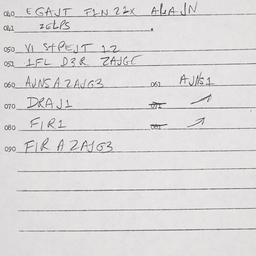 040 EGAJT FIN 22X ALAJN
041 ZELPS .
050 VI STREJT 12
051 IFL D3R ZAJGE
060 AJNS A ZAJG3 061 AJNS1
070 DRAJ1 071
080 FIR1 081
090 FIR A ZAJG3